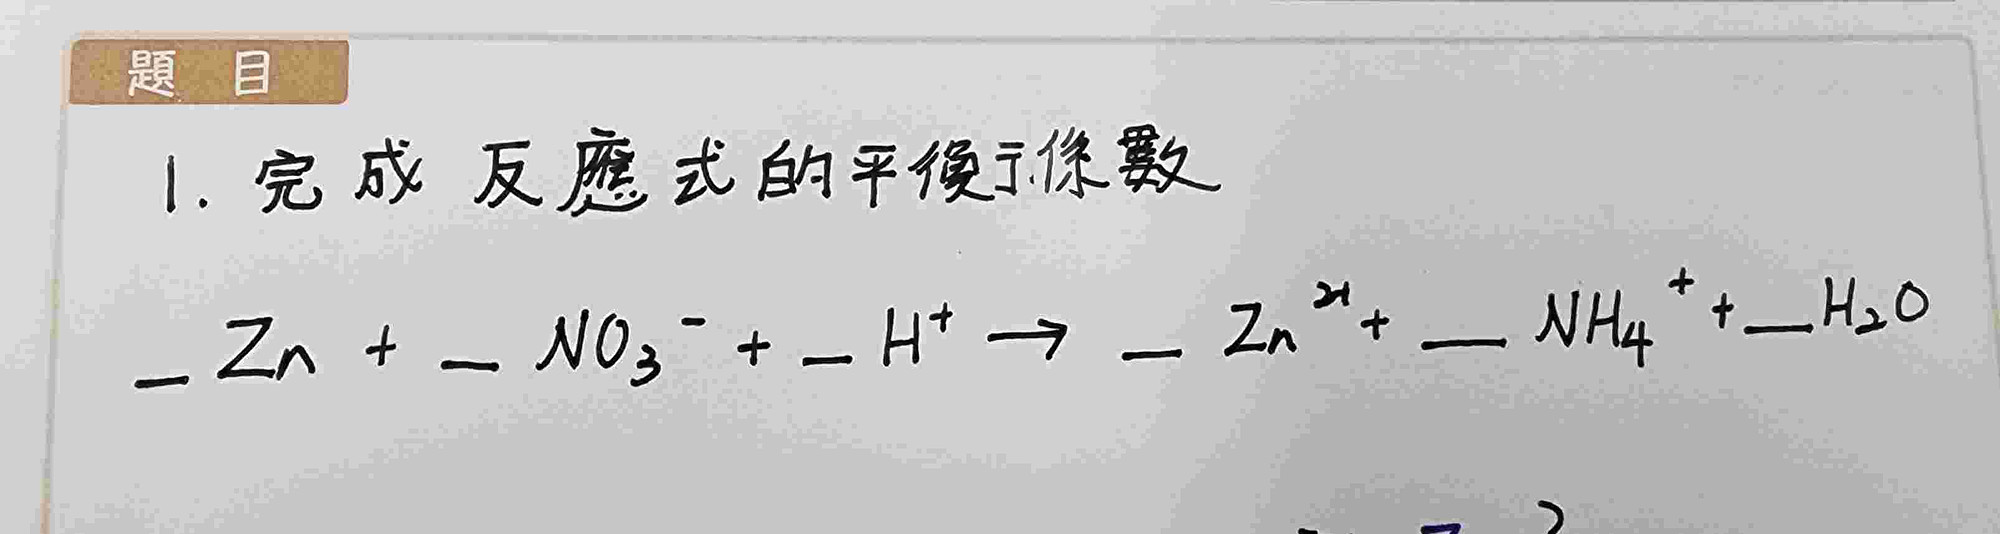 題 目
1. 完成 反應式的平衡係數
_ Zn + _ NO₃⁻ + _ H⁺ → _ Zn²⁺ + _ NH₄⁺ + _ H₂O